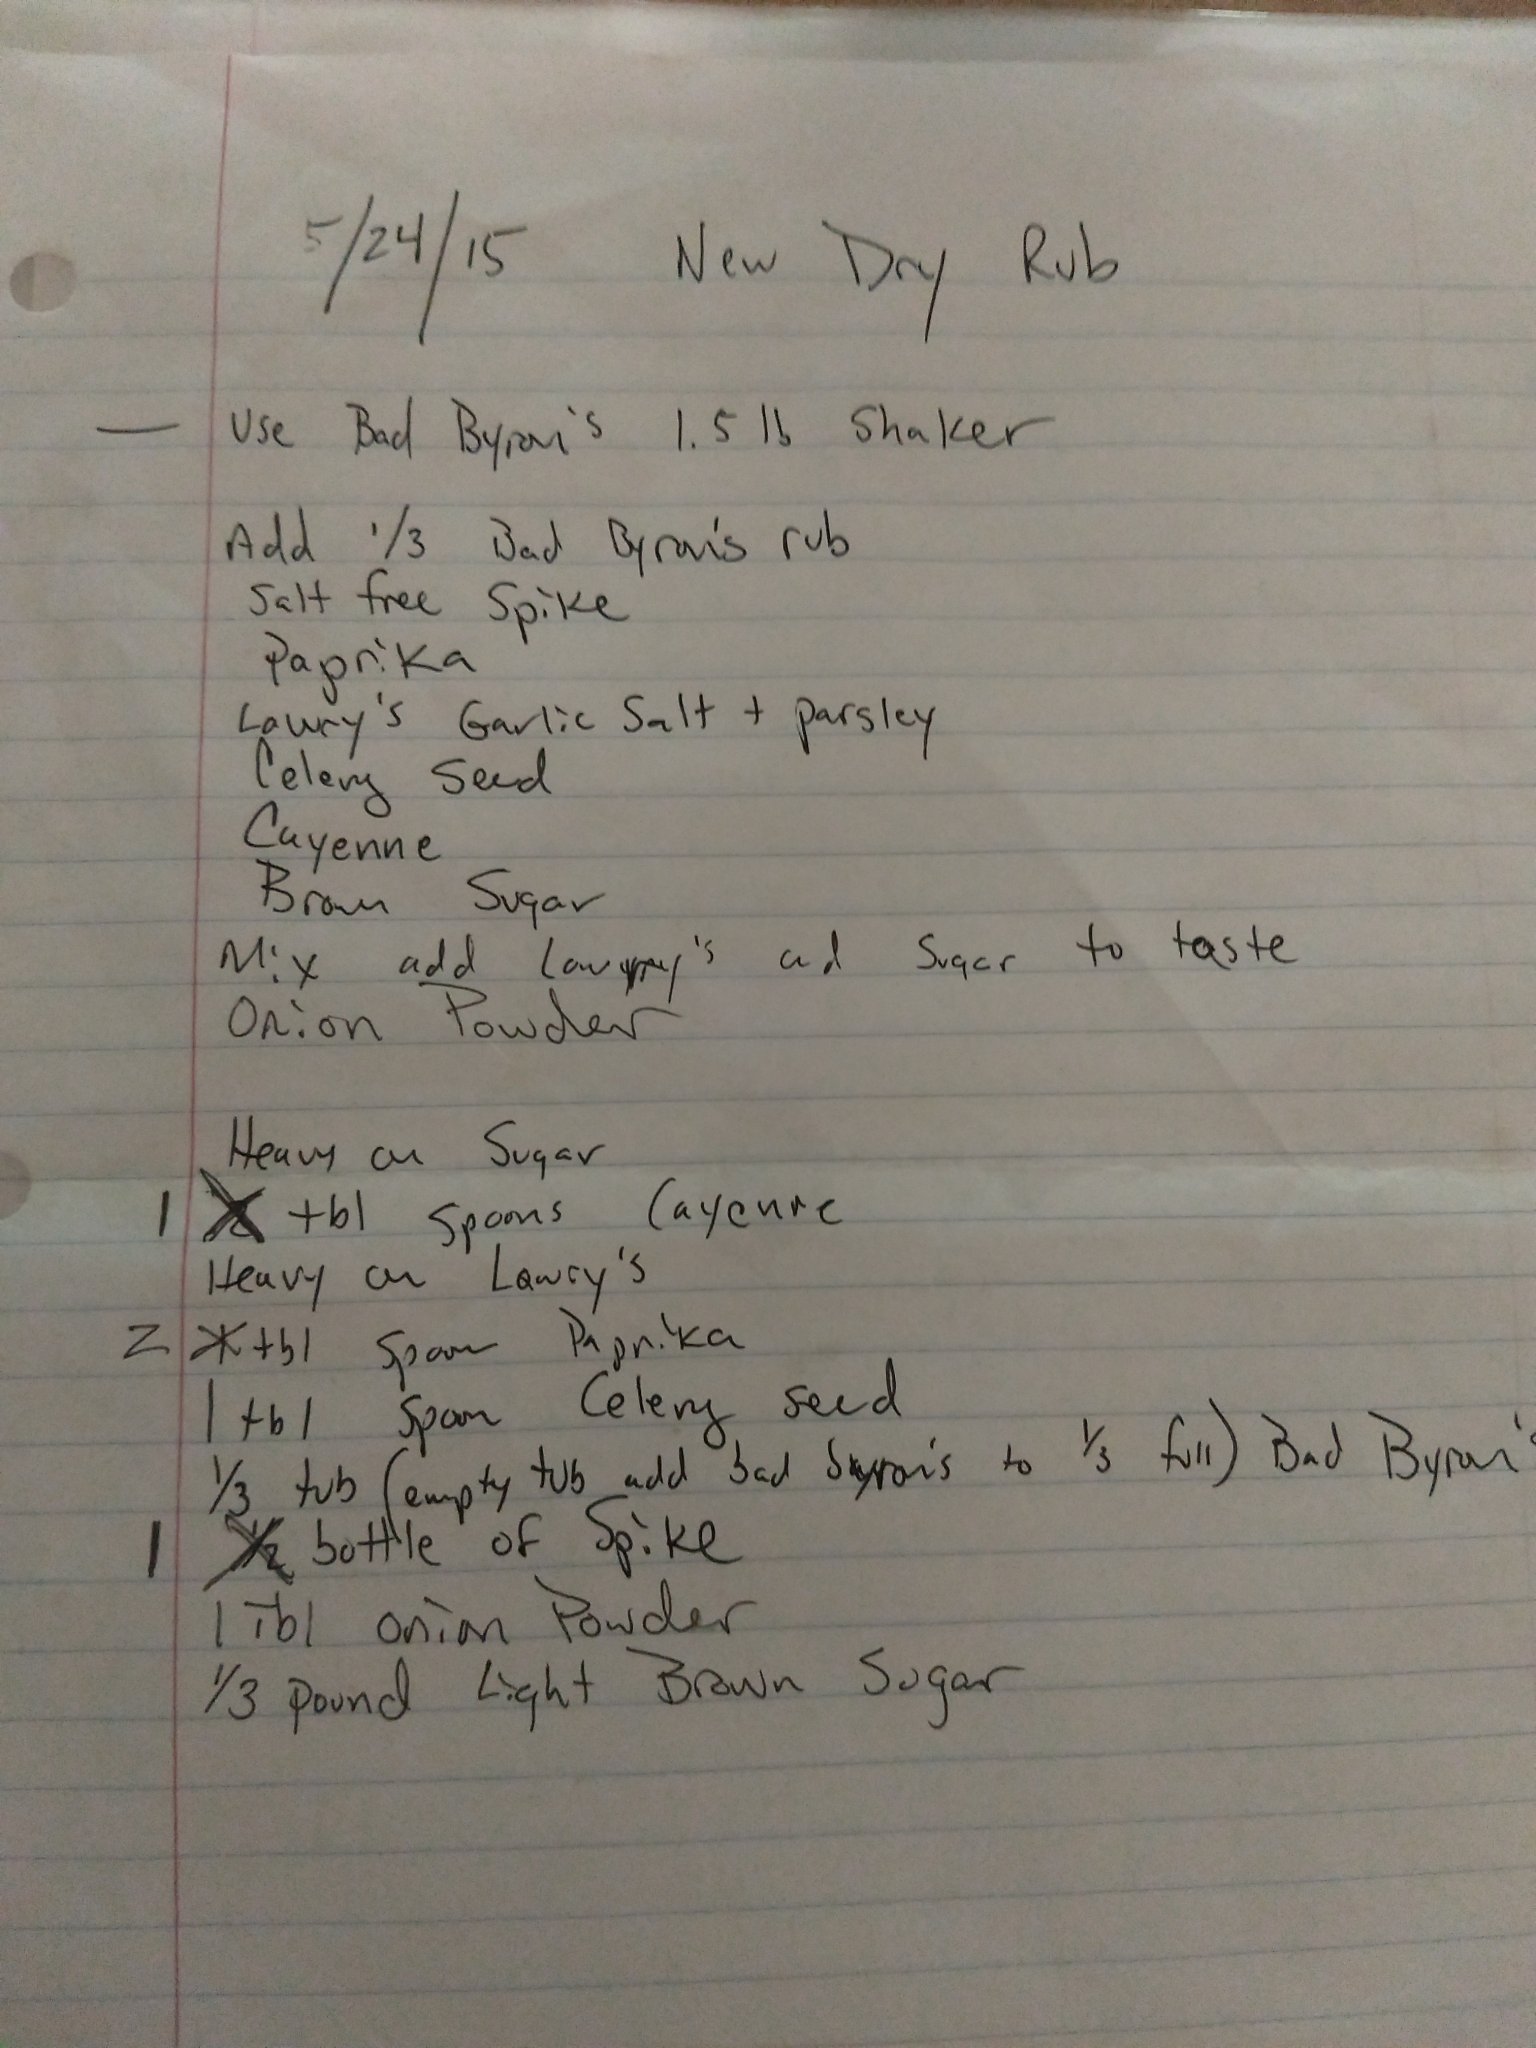 5/24/15 New Dry Rub
— Use Bad Byron's 1.5 lb Shaker
Add 1/3 Bad Byron's rub
Salt free Spike
Paprika
Lawry's Garlic Salt + parsley
Celery Seed
Cayenne
Brown Sugar
Mix add Lawry's ad Sugar to taste
Onion Powder
Heavy on Sugar
1 tbl spoons Cayenne
Heavy on Lawry's
2 tbl spoon Paprika
1 tbl spoon Celery seed
1/3 tub (empty tub add bad byron's to 1/3 full) Bad Byron's
1 1/2 bottle of Spike
1 Tbl onion Powder
1/3 pound Light Brown Sugar